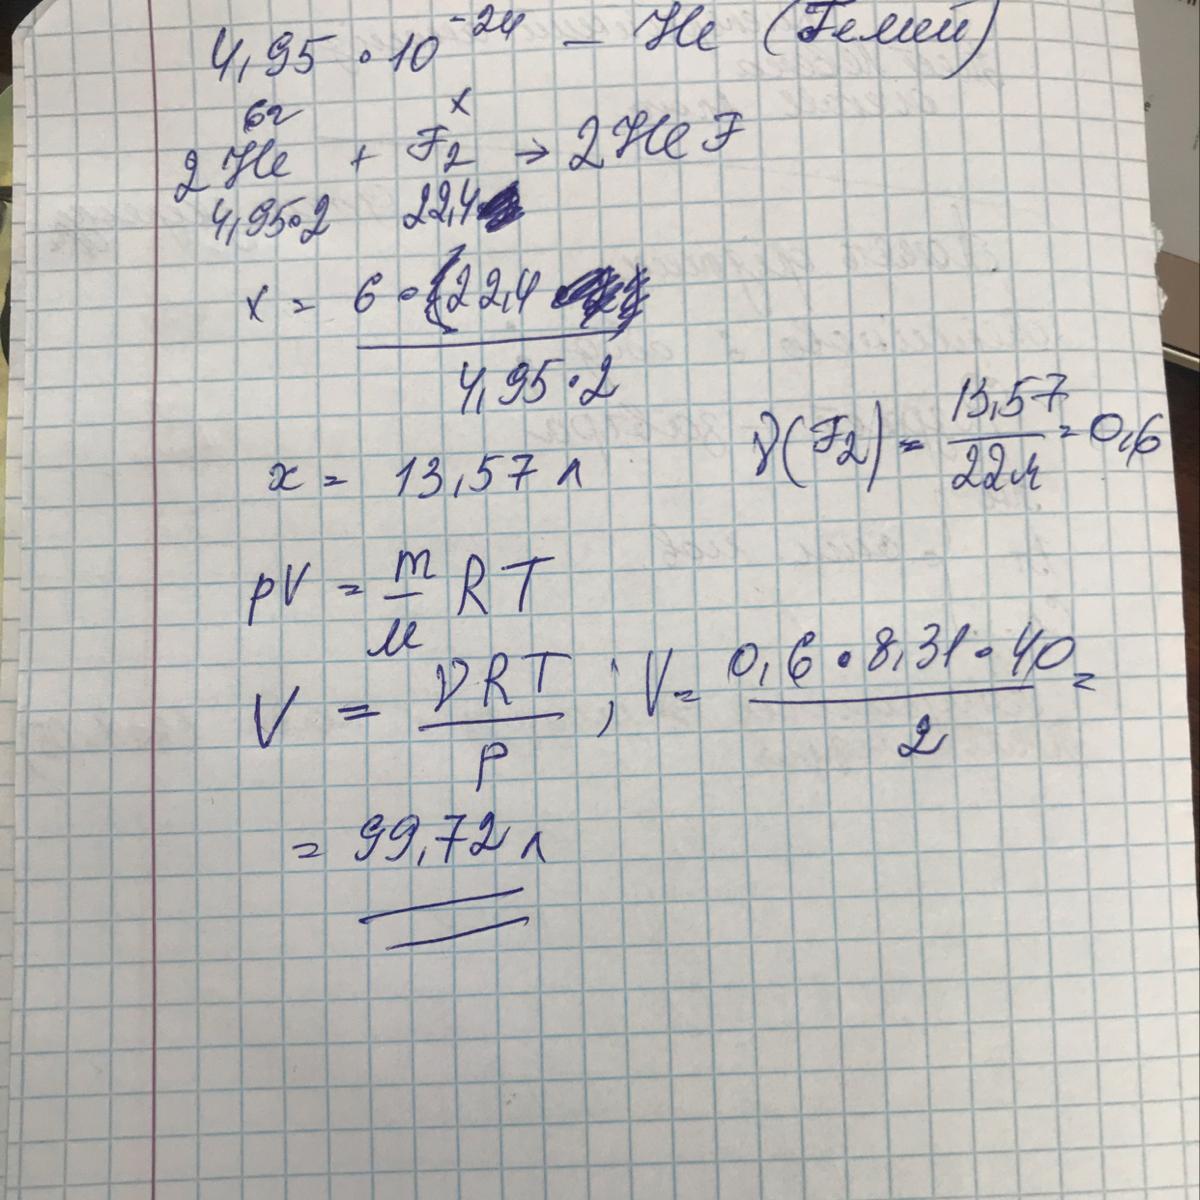 4,95 · 10⁻²⁴ – He (Гелий)
6г x
2He + F₂ → 2HeF
4,95·2 22,4
x = 6 · (22,4) / 4,95·2
x = 13,57 л
ν(F₂) = 13,57 / 22,4 = 0,6
pV = m/μ RT
V = νRT / p ; V = 0,6 · 8,31 · 40 / 2 =
= 99,72 л